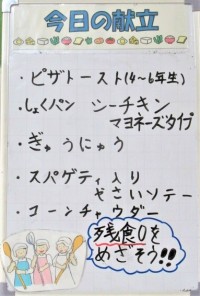 今日の献立
・ピザトースト(4~6年生)
・しょくパン シーチキン
マヨネーズタイプ
・ぎゅうにゅう
・スパゲティ入り
やさいソテー
・コーンチャウダー
残食0を
めざそう!!